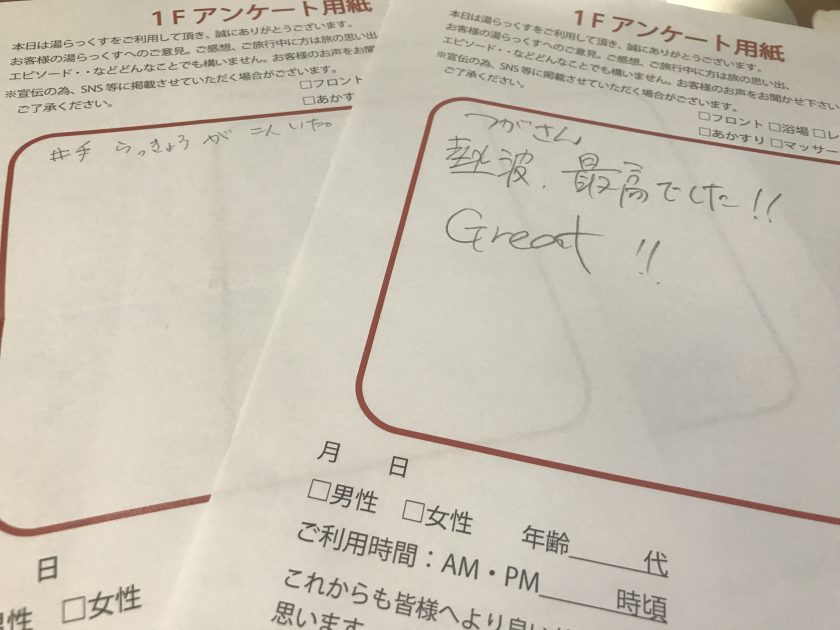 1Fアンケート用紙
本日は湯らっくすをご利用して頂き、誠にありがとうございます。
お客様の湯らっくすへのご意見。ご感想、ご旅行中に方は旅の思い出
エピソード・・などどんなことでも構いません。お客様のお声をお聞
※宣伝の為、SNS等に掲載させていただく場合がございます。
ご了承ください。
□フロント
□あかす
井手 らっきょう が
日
男性 □女性
1Fアンケート用紙
本日は湯らっくすをご利用して頂き、誠にありがとうございます。
お客様の湯らっくすへのご意見。ご感想、ご旅行中に方は旅の思い出、
エピソード・・などどんなことでも構いません。お客様のお声をお聞かせ下さい
※宣伝の為、SNS等に掲載させていただく場合がございます。
ご了承ください。
□フロント □浴場 □レ
□あかすり □マッサー
つがさん
熱波、最高でした!!
Great !!
月 日
□男性 □女性 年齢______代
ご利用時間:AM・PM______時頃
これからも皆様へより良い
思います